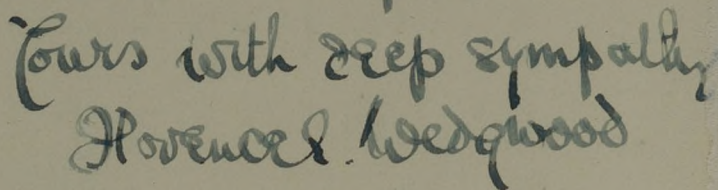 Yours with deep sympathy
Florence L. Wedgwood